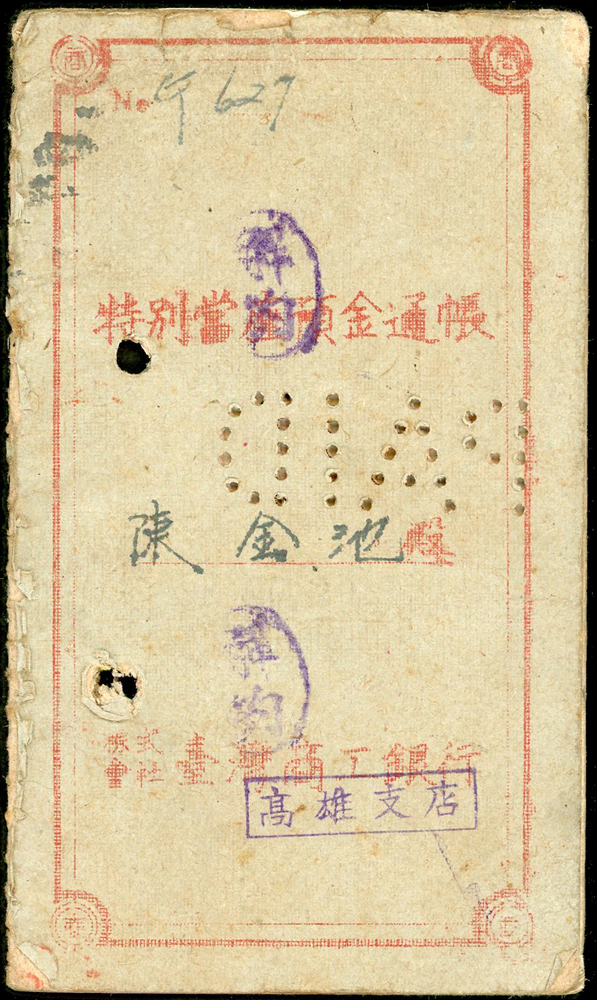 No 627
特別當座預金通帳
PAID
陳金池殿
株式會社 臺灣商工銀行
高雄支店